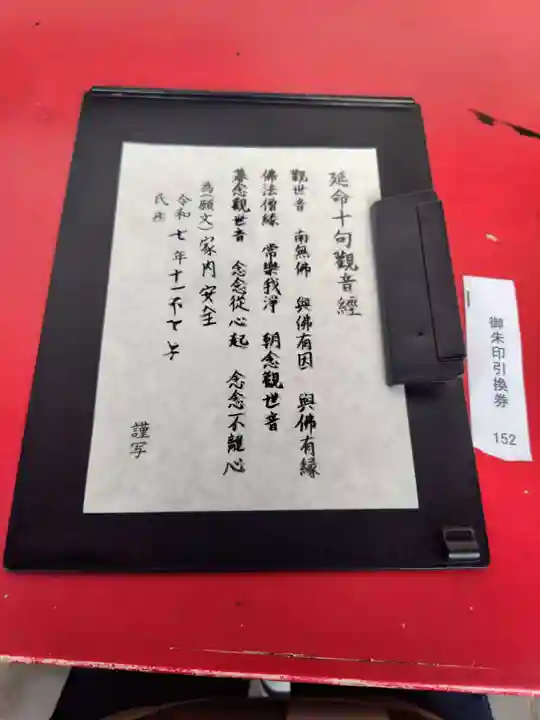 延命十句觀音經
觀世音 南無佛 與佛有因 與佛有縁
佛法僧縁 常樂我淨 朝念觀世音
暮念觀世音 念念從心起 念念不離心
為願文)家内安全
令和 七 年 十一
氏
謹写
御朱印引換券
152